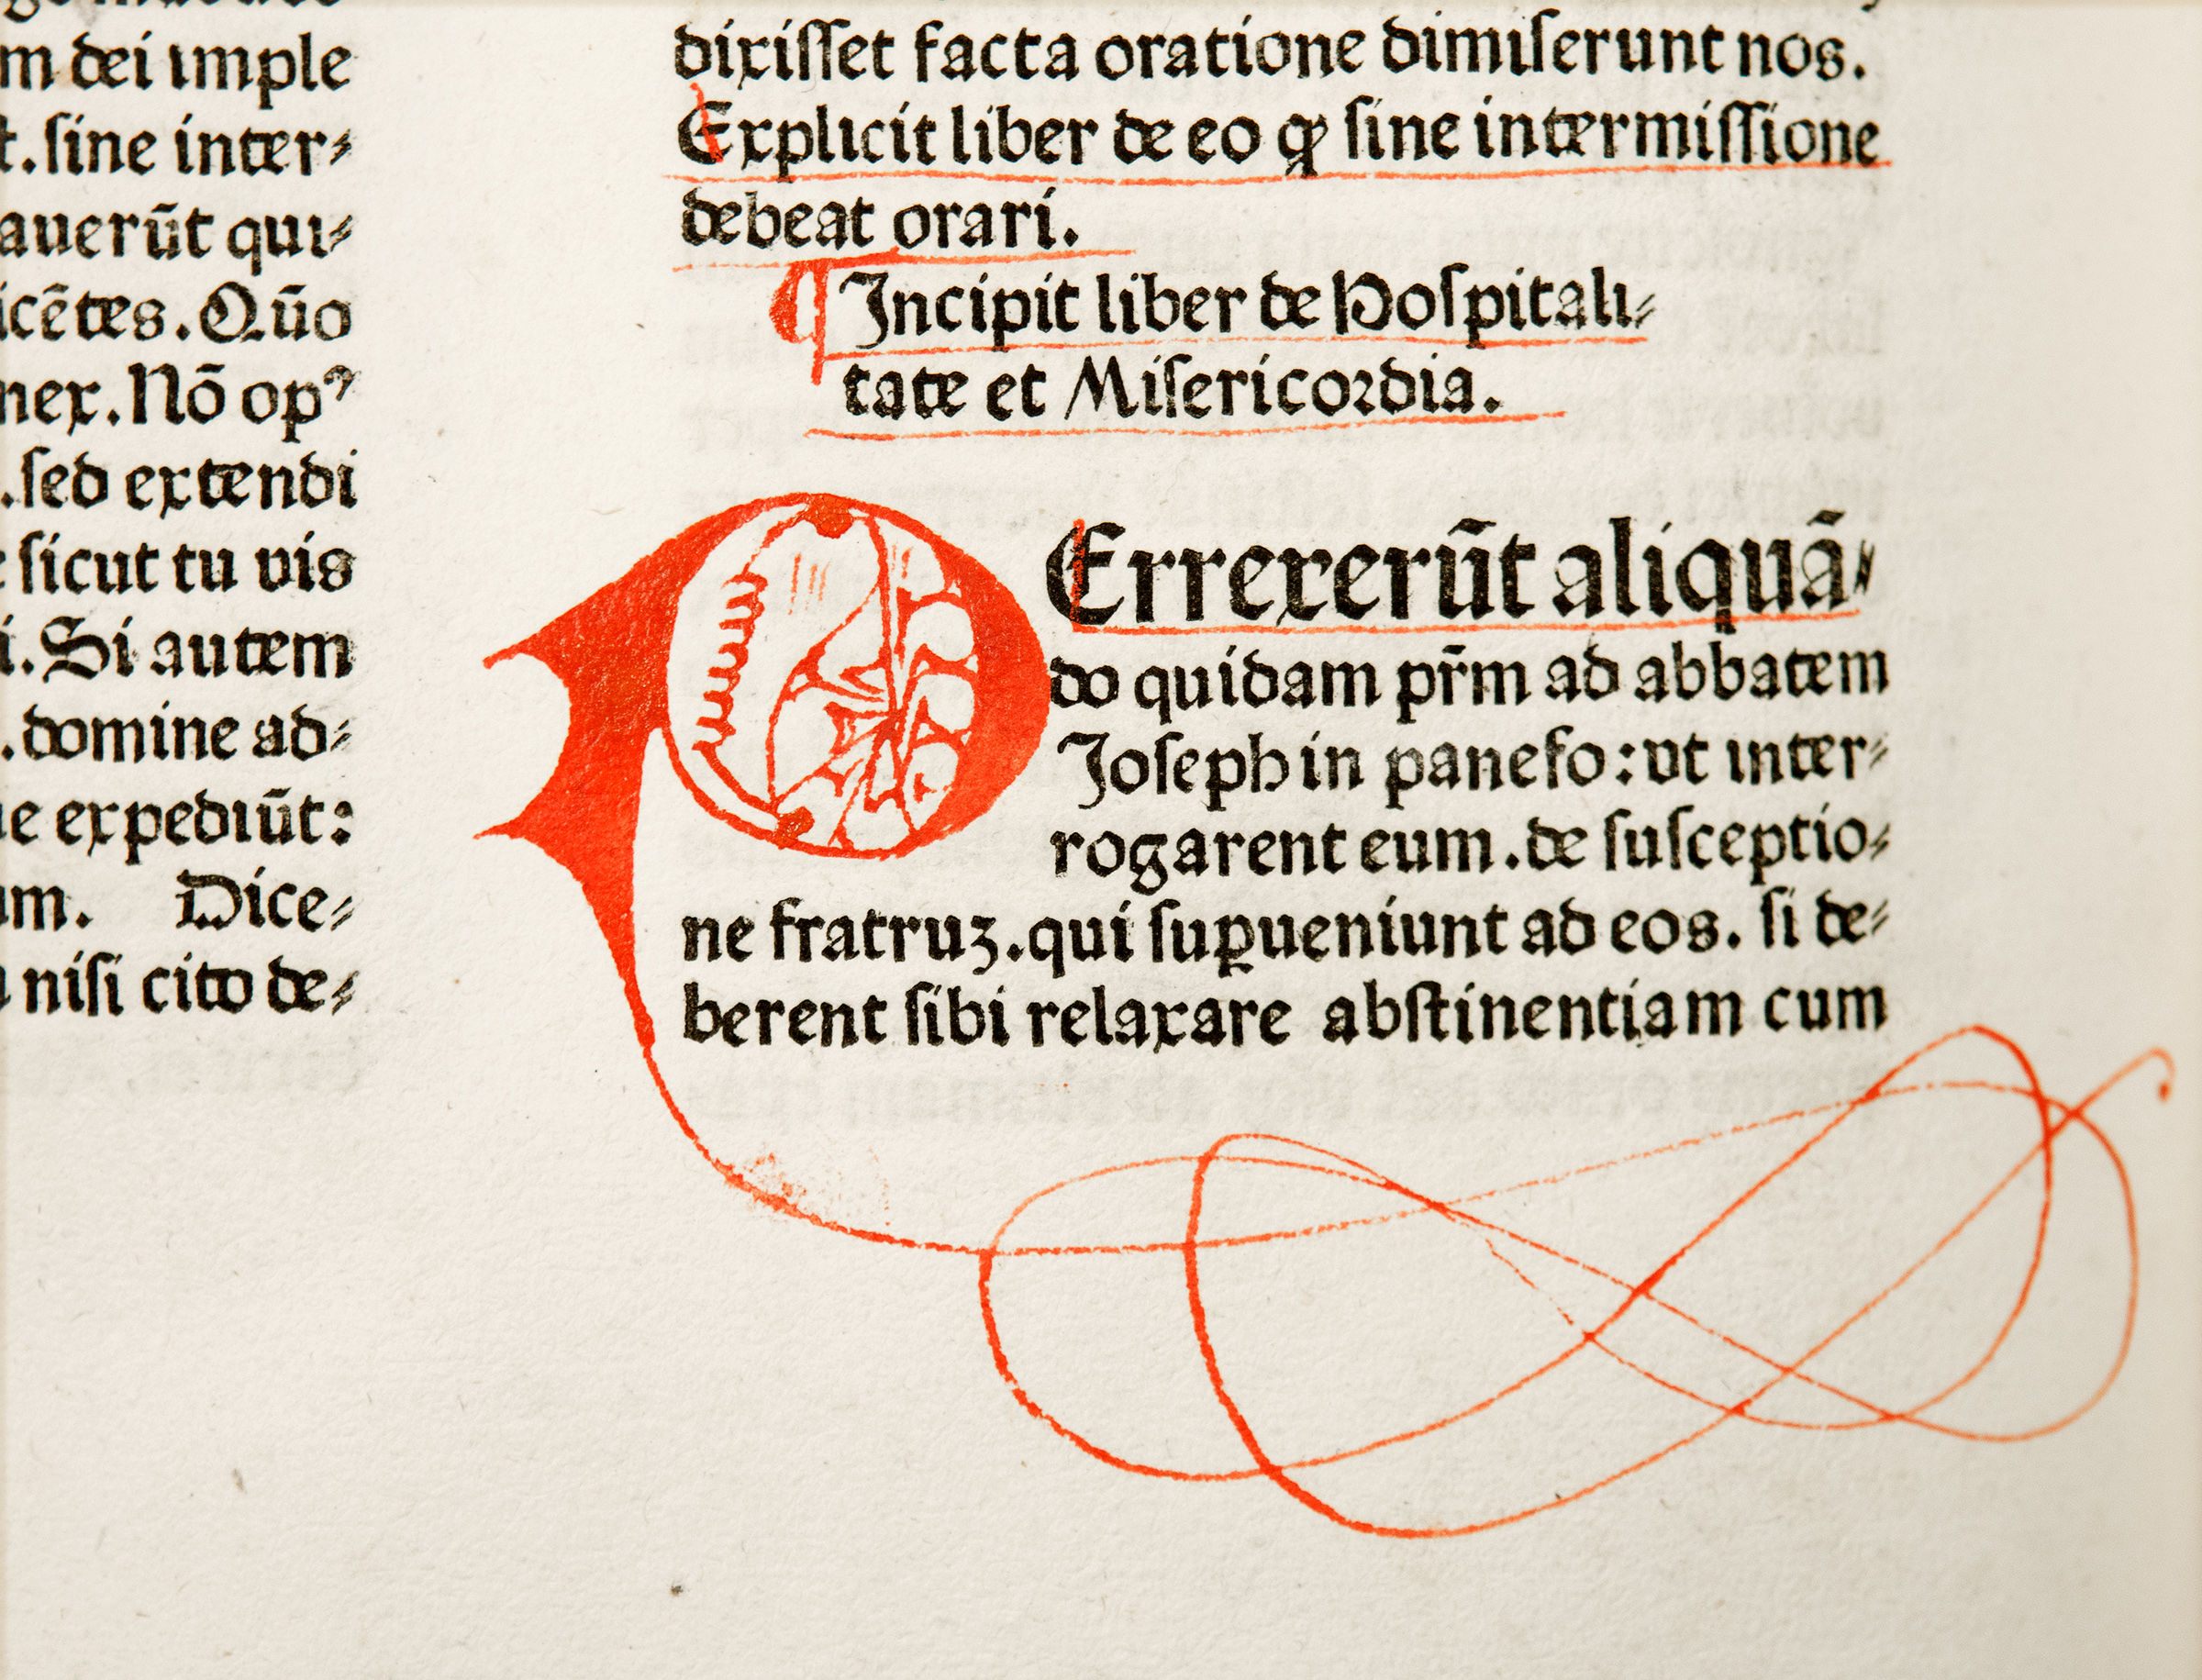 m dei imple
t. ſine inter⸗
auerūt qui⸗
icētes. Qūo
nex. Nō opꝰ
. ſed extendi
ſicut tu vis
i. Si autem
. domine ad⸗
ne expediūt:
um. Dice⸗
niſi cito de⸗
dixiſſet facta oratione dimiſerunt nos.
Explicit liber de eo ꝙ ſine intermiſſione
debeat orari.
¶ Incipit liber de Hoſpitali⸗
tate et Miſericoꝛdia.
PErrexerūt aliquā⸗
do quidam pr̄m ad abbatem
Joſeph in panefo: vt inter⸗
rogarent eum. de ſuſceptio⸗
ne fratruꝫ. qui ſuꝑueniunt ad eos. ſi de⸗
berent ſibi relaxare abſtinentiam cum